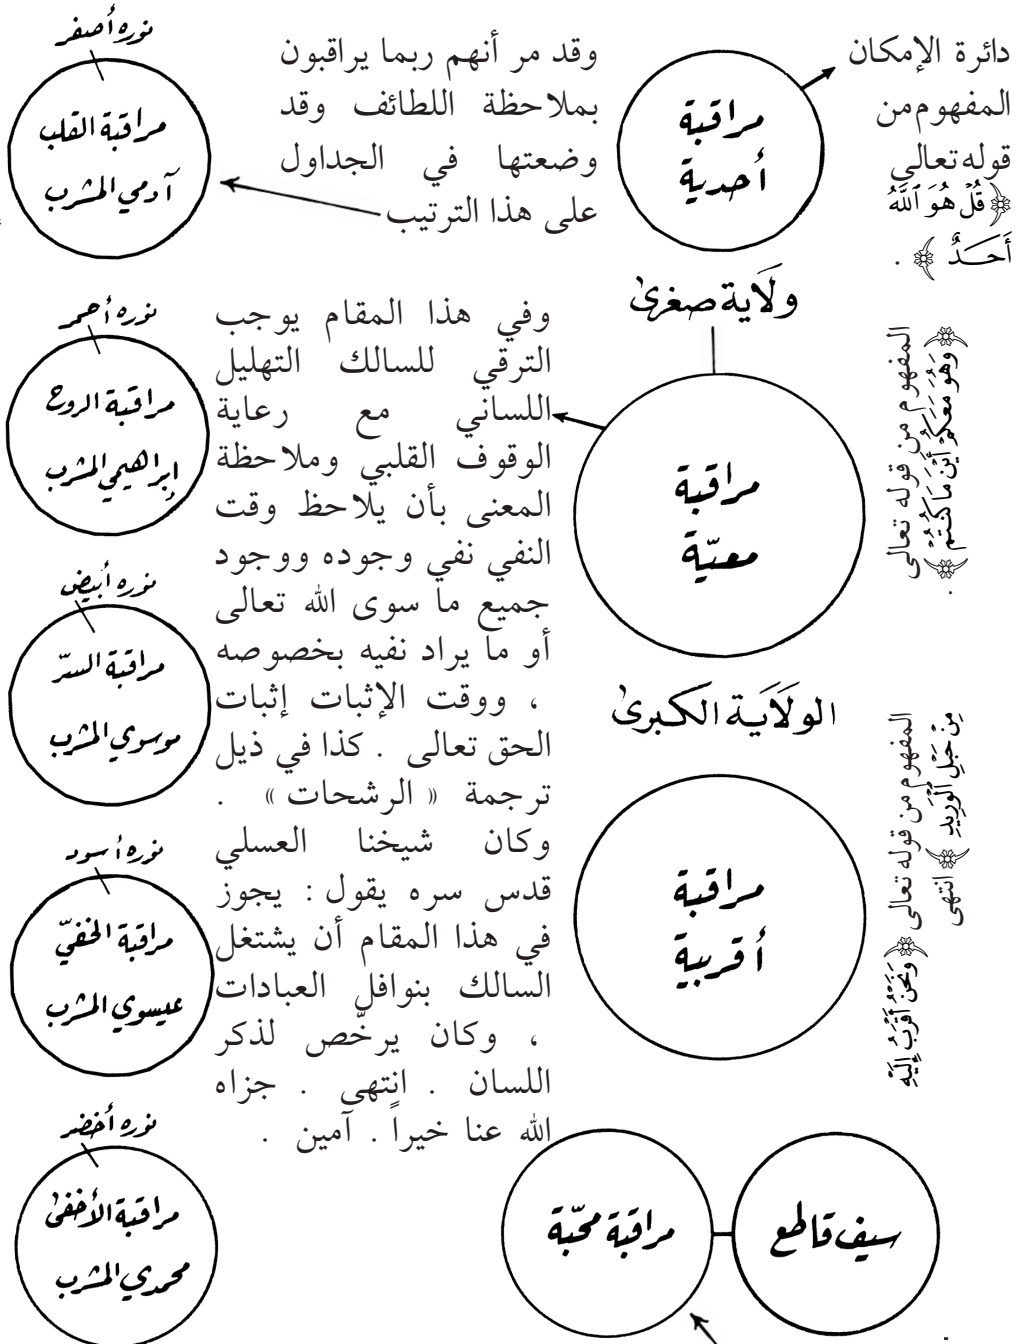 دائرة الإمكان
المفهوم من
قوله تعالى
﴿قُلْ هُوَ ٱللَّهُ
أَحَـدٌ ﴾ .
مراقبة
أحدية
وقد مر أنهم ربما يراقبون
بملاحظة اللطائف وقد
وضعتها في الجداول
على هذا الترتيب
نوره أصفر
مراقبة القلب
آدمي المشرب
ولَاية صغرىٰ
مراقبة
معيّة
المفهوم من قوله تعالى
﴿وَهُوَ مَعَكُمْ أَيْنَ مَا كُنتُمْ﴾ .
وفي هذا المقام يوجب
الترقي للسالك التهليل
اللساني مع رعاية
الوقوف القلبي وملاحظة
المعنى بأن يلاحظ وقت
النفي نفي وجوده ووجود
جميع ما سوى الله تعالى
أو ما يراد نفيه بخصوصه
، ووقت الإثبات إثبات
الحق تعالى . كذا في ذيل
ترجمة « الرشحات » .
وكان شيخنا العسلي
قدس سره يقول : يجوز
في هذا المقام أن يشتغل
السالك بنوافل العبادات
، وكان يرخَّص لذكر
اللسان . انتهى . جزاه
الله عنا خيراً . آمين .
نوره أحمر
مراقبة الروح
إبراهيمي المشرب
نوره أبيض
مراقبة السرّ
موسوي المشرب
نوره أسود
مراقبة الخفيّ
عيسوي المشرب
نوره أخضر
مراقبة الأخفىٰ
محمدي المشرب
الولَاَيـة الكـبرىٰ
مراقبة
أقربية
المفهوم من قوله تعالى ﴿ وَنَحْنُ أَقْرَبُ إِلَيْهِ
مِنْ حَبْلِ الْوَرِيدِ ﴾ انتهى
سيف قاطع
مراقبة محبّة